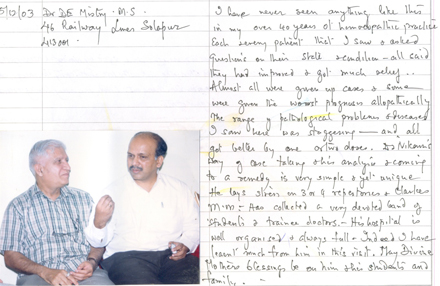 5/10/03 Dr D.E. Mistry. M.S.
46 Railway Lines Solapur
413001
I have never seen anything like this
in my over 40 years of homoeopathic practice
Each & every patient that I saw & asked
questions on their state & condition - all said
they had improved & got much relief..
Almost all were given up cases & some
were given the worst prognosis allopathically
The range of pathological problems & diseases
I saw here was staggering — and all
got better by one or two doses. Dr
way of case taking & his analysis & coming
to a remedy is very simple & yet unique
He lays stress on 3 or 4 repertories &
M.M - Has collected a very devoted band of
students & trainee doctors. - His hospital is
well organised & always full - Indeed I have
learnt much from him in this visit. May Divine
Mothers blessings be on him & his students and
family.